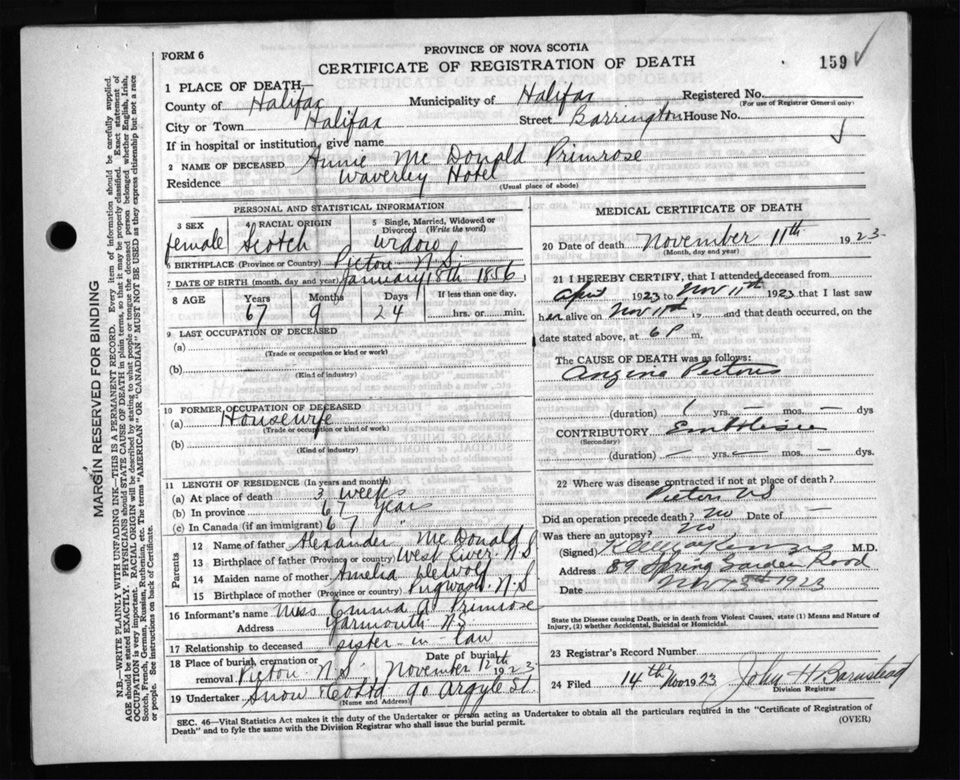 FORM 6
PROVINCE OF NOVA SCOTIA
CERTIFICATE OF REGISTRATION OF DEATH
159
1 PLACE OF DEATH,—
County of Halifax Municipality of Halifax Registered No.
(For use of Registrar General only)
City or Town Halifax Street Barrington House No.
If in hospital or institution, give name
2 NAME OF DECEASED Annie Mc Donald Primrose
Residence Waverley Hotel
(Usual place of abode)
PERSONAL AND STATISTICAL INFORMATION
3 SEX 4 RACIAL ORIGIN 5 Single, Married, Widowed or Divorced (Write the word)
female Scotch widow
6 BIRTHPLACE (Province or Country) Pictou N.S.
7 DATE OF BIRTH (month, day and year) January 18th 1856
8 AGE Years Months Days If less than one day,
67 9 24 hrs. or min.
9 LAST OCCUPATION OF DECEASED
(a)
(Trade or occupation or kind of work)
(b)
(Kind of industry)
10 FORMER OCCUPATION OF DECEASED
(a) Housewife
(Trade or occupation or kind of work)
(b)
(Kind of industry)
11 LENGTH OF RESIDENCE (In years and months)
(a) At place of death 3 weeks
(b) In province 67 years
(c) In Canada (if an immigrant) 67 "
Parents
12 Name of father Alexander Mc Donald
13 Birthplace of father (Province or country) West River N.S
14 Maiden name of mother Amelia DeWolf
15 Birthplace of mother (Province or country) Pugwash N.S
16 Informant's name Miss Emma A. Primrose
Address Yarmouth N.S
17 Relationship to deceased sister-in-law
18 Place of burial, cremation or removal Pictou N.S. Date of burial November 12th 1923
19 Undertaker Snow & Co Ltd 90 Argyle St.
(Name and Address)
MEDICAL CERTIFICATE OF DEATH
20 Date of death November 11th 1923
(Month, day and year)
21 I HEREBY CERTIFY, that I attended deceased from
April 1923 to Nov 11th 1923 that I last saw
her alive on Nov 11th 19 and that death occurred, on the
date stated above, at 6 P m.
The CAUSE OF DEATH was as follows:
Angina Pectoris
(duration) 1 yrs. — mos. — dys
CONTRIBUTORY Embolism
(Secondary)
(duration) — yrs. — mos. — dys.
22 Where was disease contracted if not at place of death?
Pictou NS
Did an operation precede death? no Date of —
Was there an autopsy? no
(Signed) M.D.
Address 89 Spring Garden Road
Date Nov 1923
State the Disease causing Death, or in death from Violent Causes, state (1) Means and Nature of Injury, (2) whether Accidental, Suicidal or Homicidal.
23 Registrar's Record Number
24 Filed 14th Nov 1923 John H Barnstead
Division Registrar
SEC. 46—Vital Statistics Act makes it the duty of the Undertaker or person acting as Undertaker to obtain all the particulars required in the "Certificate of Registration of
Death" and to fyle the same with the Division Registrar who shall issue the burial permit.
(OVER)
MARGIN RESERVED FOR BINDING
N.B.—WRITE PLAINLY WITH UNFADING INK—THIS IS A PERMANENT RECORD. Every item of information should be carefully supplied.
AGE should be stated EXACTLY. PHYSICIANS should STATE CAUSE OF DEATH in plain terms, so that it may be properly classified. Exact statement of
OCCUPATION is very important. RACIAL ORIGIN will be described by stating to what people or tongue the deceased person belonged whether English, Irish,
Scotch, French, German, Russian, Ruthenian, etc. The terms "AMERICAN" OR "CANADIAN" MUST NOT BE USED as they express citizenship but not a race
or people. See instructions on back of Certificate.